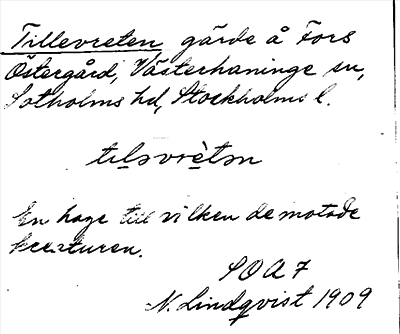 Tillevreten gärde å Fors
Östergård, Västerhaninge sn,
Sotholms hd, Stockholms l.
tiləvrètən
En hage till vilken de motade
kreaturen.
SOA 7
N. Lindqvist 1909